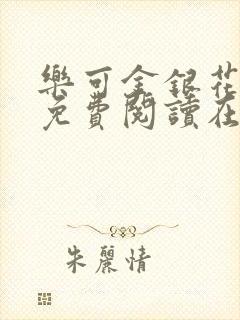 樂可金銀花
免費閱讀在
朱麗倩